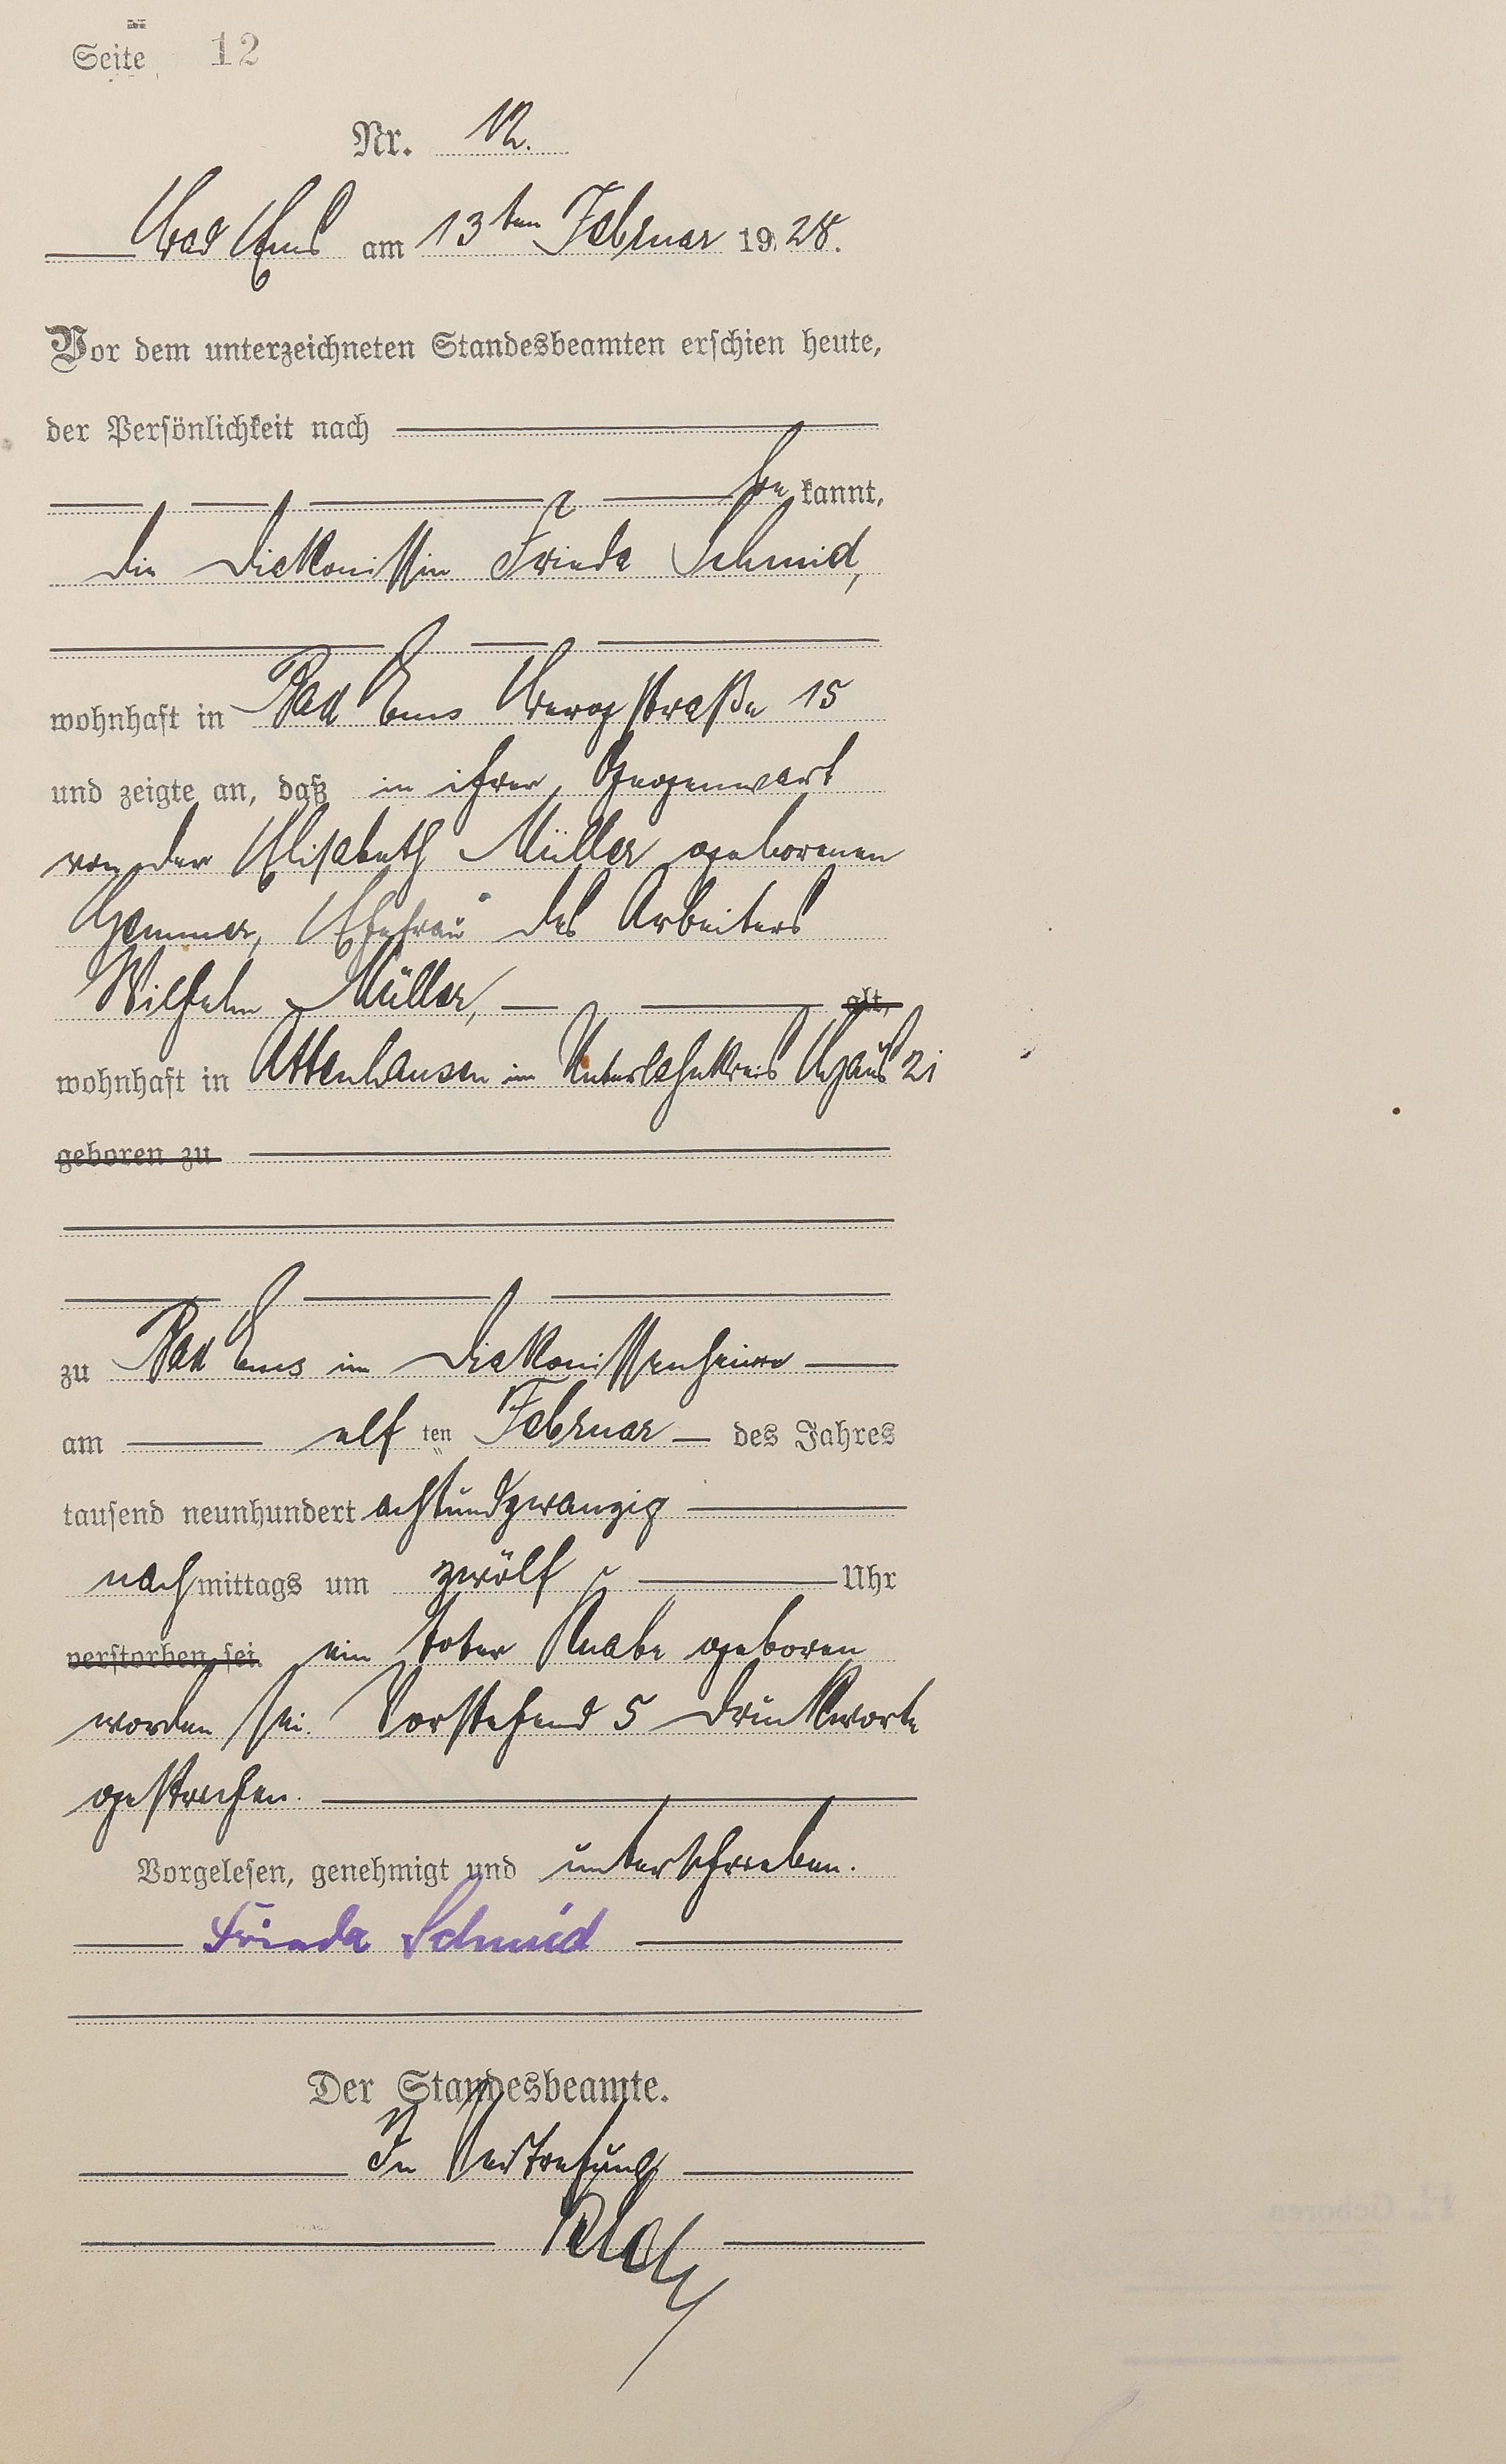 Seite 12
Nr. 12.
Bad Ems am 13ten Februar 1928.
Vor dem unterzeichneten Standesbeamten erschien heute,
der Persönlichkeit nach
be kannt,
die Diakonissin Frieda Schmid,
wohnhaft in Bad Ems straße 15
und zeigte an, daß in ihrer Gegenwart
von der Elisabeth Müller geborenen
Gemmer, Ehefrau des Arbeiters
Wilhelm Müller, alt,
wohnhaft in Attenhausen im Unterlahnkreis Haus 21
geboren zu
zu Bad Ems im Diakonissenheime
am elf ten Februar des Jahres
tausend neunhundert achtundzwanzig
nachmittags um zwölf Uhr
verstorben sei. ein toter Knabe geboren
worden sei. Vorstehend 5 Druckworte
gestrichen.
Vorgelesen, genehmigt und unterschrieben.
Frieda Schmid
Der Standesbeamte.
In Vertretung
H. Geboren